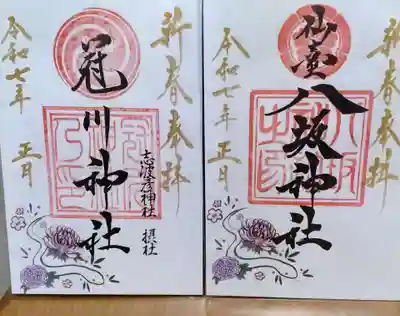 新春奉拝
冠川神社
志波彦神社 摂社
令和七年 正月
新春奉拝
仙臺
八坂神社
令和七年 正月